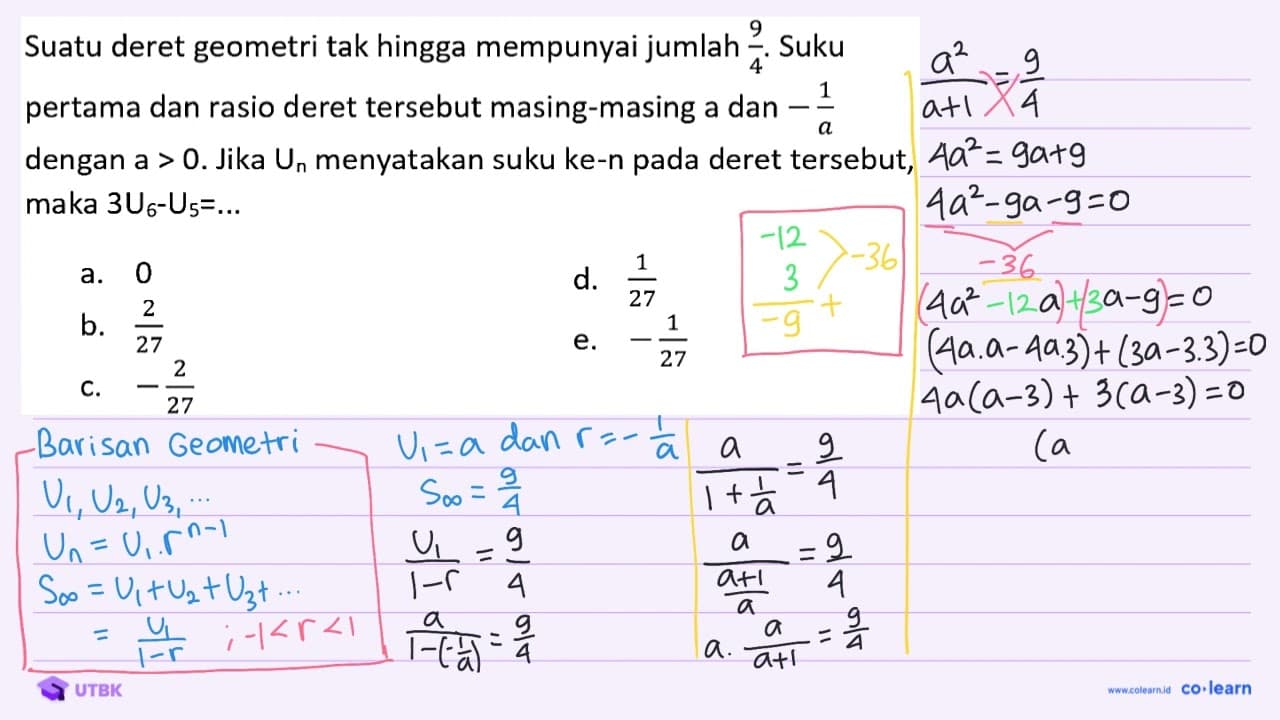 Suatu deret geometri tak hingga mempunyai jumlah 9/4. Suku
pertama dan rasio deret tersebut masing-masing a dan −1/a
dengan a > 0. Jika Uₙ menyatakan suku ke-n pada deret tersebut,
maka 3U₆-U₅=...
a. 0
b. 2/27
c. −2/27
d. 1/27
e. −1/27
-12
3 > -36
-9 +
Barisan Geometri
U₁, U₂, U₃, ...
Uₙ = U₁.rⁿ⁻¹
S∞ = U₁+U₂+U₃+...
= U₁/(1-r) ; -1<r<1
U₁=a dan r=-1/a
S∞ = 9/4
U₁/(1-r) = 9/4
a/(1-(-1/a)) = 9/4
a/(1+1/a) = 9/4
a/((a+1)/a) = 9/4
a. a/(a+1) = 9/4
a²/(a+1) = 9/4
4a² = 9a+9
4a²-9a-9=0
-36
(4a²-12a)+(3a-9)=0
(4a.a-4a.3)+(3a-3.3)=0
4a(a-3)+3(a-3)=0
(a
UTBK
www.colearn.id co·learn